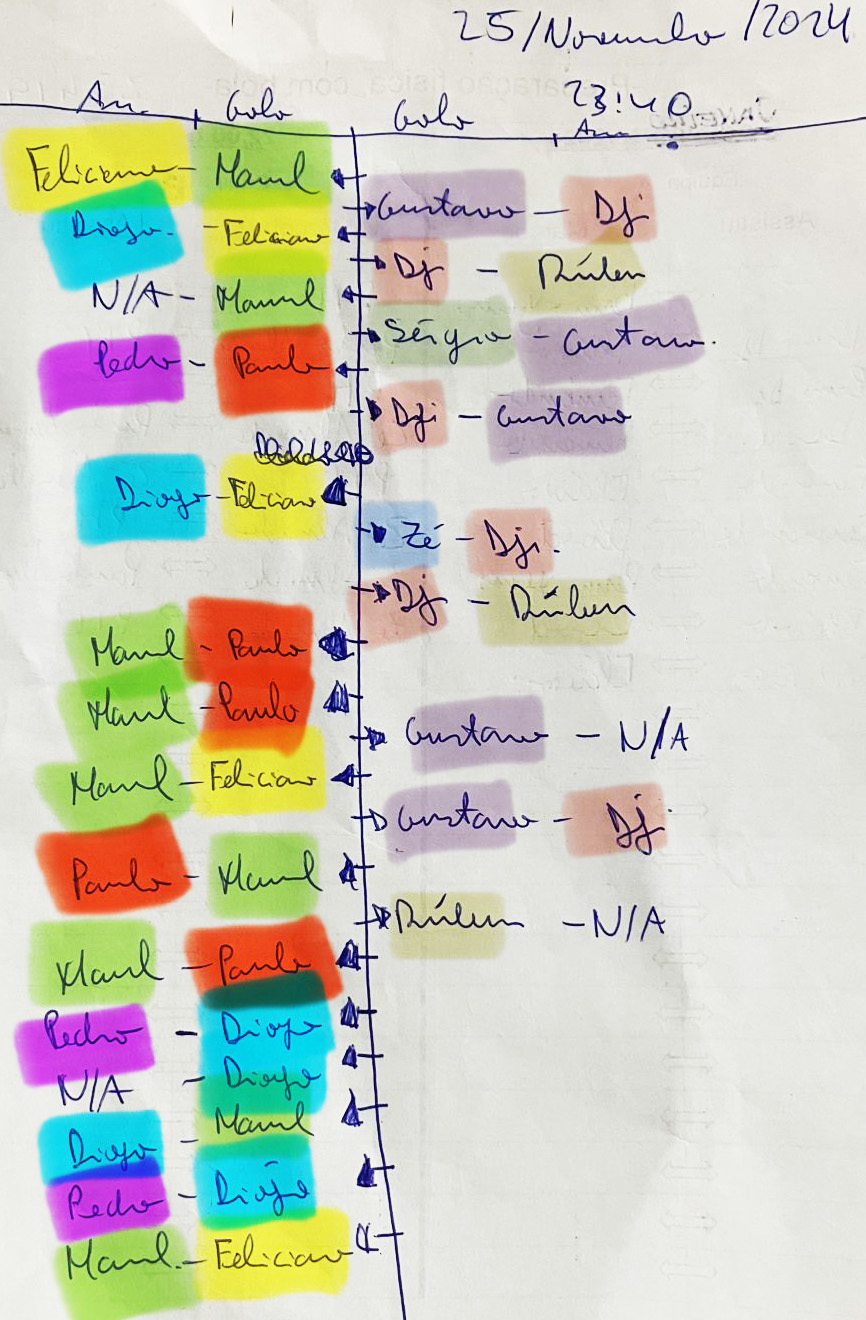 25/Novembro/2024
Ass. Golo Golo 23:40
Ass.
Feliciano - Manel
Gustavo - Dj
Diogo. - Feliciano
Dj - Rúben
N/A - Manel
Sérgio - Gustavo.
Pedro - Paulo
Dji - Gustavo
Diogo - Feliciano
Zé - Dji.
Dj - Rúben
Manel - Paulo
Manel - Paulo
Gustavo - N/A
Manel - Feliciano
Gustavo - Dj
Paulo - Manel
Rúben - N/A
Manel - Paulo
Pedro - Diogo
N/A - Diogo
Diogo - Manel
Pedro - Diogo
Manel. - Feliciano